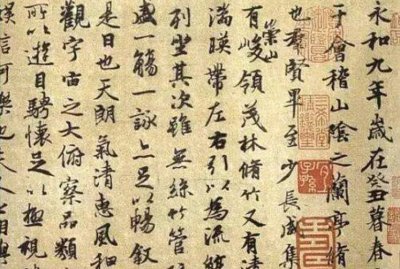 永和九年歲在癸丑暮春
于會稽山陰之蘭亭脩
也羣賢畢至少長咸集
有崇山峻領茂林脩竹又有清
湍暎帶左右引以為流
列坐其次雖無絲竹管
盛一觴一詠亦足以暢叙
是日也天朗氣清惠風和
觀宇宙之大俯察品類
所以遊目騁懷足以極視
娛信可樂也夫人之相與